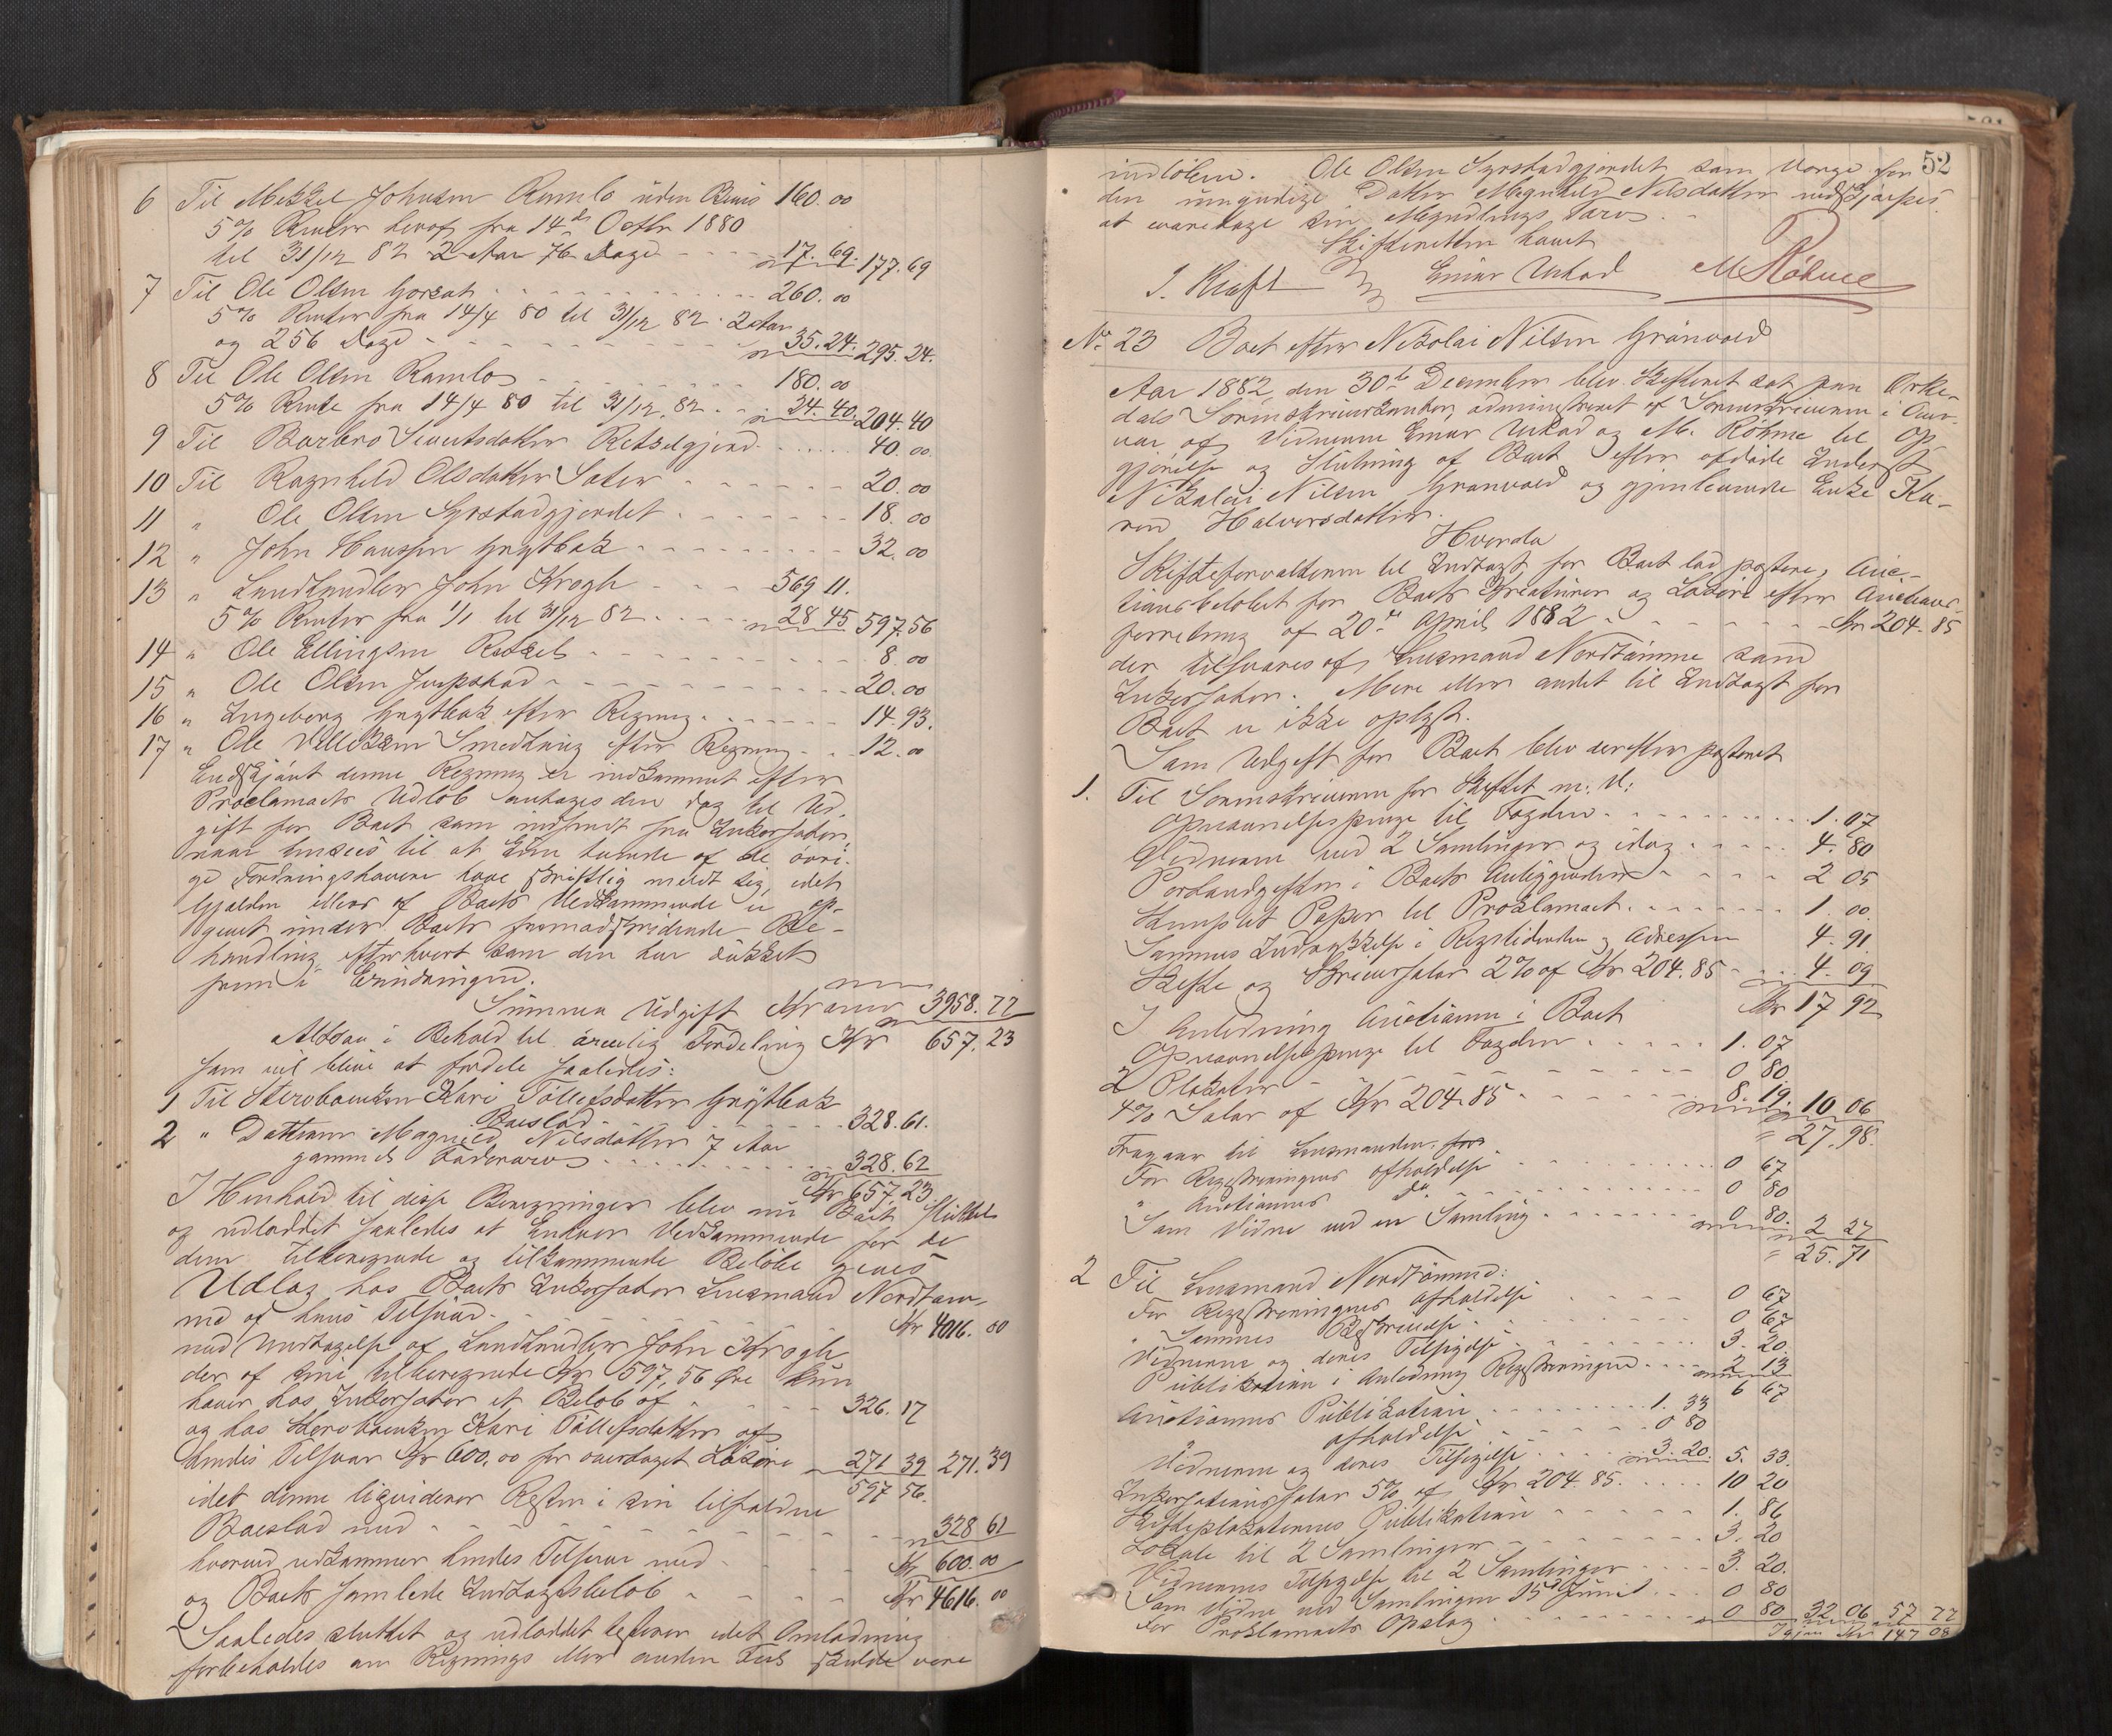 6 Til Mekkel Johnsen Ramlo uden Beviis 160.00
5% Renter heraf fra 14de Octbr 1880
til 31/12 82 2 Aar 76 Dage - - - 17.69. 177.69
7 Til Ole Olsen Gorsat - - - 260.00
5% Renter fra 14/4 80 til 31/12 82. 2 Aar
og 256 Dage - - - 35.24. 295.24.
8 Til Ole Olsen Ramlos - - - 180.00
5% Rente fra 14/4 80 til 31/12 82. - - 24.40. 204.40
9 Til Barbro Siversdatter Retselgjerd - - - 40.00.
10 Til Ragnhild Olsdatter Sæter - - - 20.00
11 " Ole Olsen Syrstadgjerdet - - - 18.00
12 " John Hanssen Grytbak - - - 32.00
13 " Landhandler John Krogh - - - 569 11.
5% Renter fra 1/1 til 31/12 82 - - - 28 45 597.56
14 " Ole Ellingsen Retsel - - - 8.00
15 " Ole Olsen Jerpstad - - - 20.00
16 " Ingeborg Grytbak efter Regning - - - 14.93.
17 " Ole Smedhaug efter Regning - - 12.00
Endskjönt denne Regning er indkommet efter
Proclamaets Udlöb antages den dog til Ud-
gift for Boet som indsendt fra Inkassator
naar hensees til at kun tvende af de övri-
ge Fordringshavere have skriftlig meldt sig, idet
Gjælden ellers af Boets Vedkommende er op-
givet under Boets fremadskridende Be-
handling efterhvert som den har dukket
frem i Erindringen.
Summa Udgift Kroner 3958.77
Altsaa i Behold til arvelig Fordeling Kr 657.23
som vil blive at fordele saaledes:
1 Til Stervboenken Kari Tollefsdatter Grytbak
Boeslod - - - 328.61.
2 " Datteren Magnild Nilsdatter 7 Aar
gammel Faderarv - - - 328.62
Kr 657.23.
I Henhold til disse Beregninger blev nu Boet sluttet
og udloddet saaledes at Enhver Vedkommende for de
dem tilberegnede og tilkommende Belöbe gives
Udlæg hos Boets Inkassator Lensmand Nordtöm-
me af hans Tilsvar - - - Kr 4016.00
med Undtagelse af Landhandler John Krogh
der af sine tilberegnede Kr 597,56 Öre kun
haver hos Inkassator et Belöb af - - - 326.17
og hos Stervboenken Kari Tollefsdatter af
hendes Tilsvar Kr 600.00 for overdraget Lösöre 271 39 271.39
597 56.
idet denne liquiderer Resten i sin tilfaldne
Boeslod med - - - 328 61
hvorved udkommer hendes Tilsvar med - - - Kr 600.00
og Boets samlede Indtægtsbelöb - - - Kr 4616.00
Saaledes sluttet og udloddet testerer idet Omlodning
forbeholdes om Regnings eller anden Feil skulde være
52
indlöben. Ole Olsen Syrstadgjerdet som Værge for
den umyndige Datter Magnhild Nilsdatter
at varetage sin Myndlings Tarv.
Skifteretten hævet
J. Kraft Einar Ustad M Röhme
No 23 Boet efter Nikolai Nilsen Grönvold
Aar 1882, den 30te December blev Skifteret sat paa Orke-
dals Sorenskriverkontor, administreret af Sorenskriveren i Over-
vær af Vidnerne Einar Ustad og M. Röhme til Op-
gjörelse og Slutning af Boet efter afdöde Inderst
Nikolai Nilsen Grönvold og gjenlevende Enke Ka-
ren Halvorsdatter.
Hvorda
Skifteforvalteren til Indtægt for Boet lod postere, Auc-
tionsbelöbet for Boets Kreaturer og Lösöre efter Auctions-
forretning af 20de April 1882 - - - Kr 204.85
der tilsvares af Lensmand Nordtömme som
Inkassator. Mere eller andet til Indtægt for
Boet er ikke oplyst.
Som Udgift for Boet blev derefter posteret
1. Til Sorenskriveren for Skiftet m. V:
Opnævnelsespenge til Fogden - - - 1.07
Vidnerne ved 2 Samlinger og idag - - - 4.80
Portoudgifter i Boets Anliggender - - - 2 05
Stemplet Papir til Proklamaet - - - 1.00.
Sammes Indrykkelse i Rigstidenden og Adressen 4.91
Skifte og Skriversalær 2% af Kr 204.85 - - - 4.09
Kr 17 92
I Anledning Auctionen i Boet
Opnævnelsespenge til Fogden - - - 1.07
2 Plakater - - - 0 80
4% Salær af Kr 204.85 - - - 8.19. 10 06
" 27.98.
Fragaar til Lensmanden for
For Registreringens afholdelse - - - 0 67
" Auctionens do - - - 0 80
Som Vidne ved en Samling - - - 0 80. 2 27
" 25.71
2 Til Lensmand Nordtömme:
For Registreringens afholdelse - - - 0 67
" Sammes Beskrivelse - - - 0 67
Vidnerne og deres Tilsigelse - - - 3.20.
Publikation i Anledning Registreringen - - - 2 13
6 67
Auctionens Publikation - - - 1.33
" afholdelse - - - 0 80
Vidnerne og deres Tilsigelse - - - 3.20. 5.33.
Inkassationssalær 5% af Kr 204.85. - - - 10 20
Skifteplakatens Publikation - - - 1.86
Lokale til 2 Samlinger - - - 3.20
Vidnernes Tilsigelse til 2 Samlinger - - - 3.20.
Som Vidne ved Samlingen 15de Juni - - - 0 80
For Proklamaets Opslag - - - 0 80 32 06 57 77
Igjen Kr 147 08